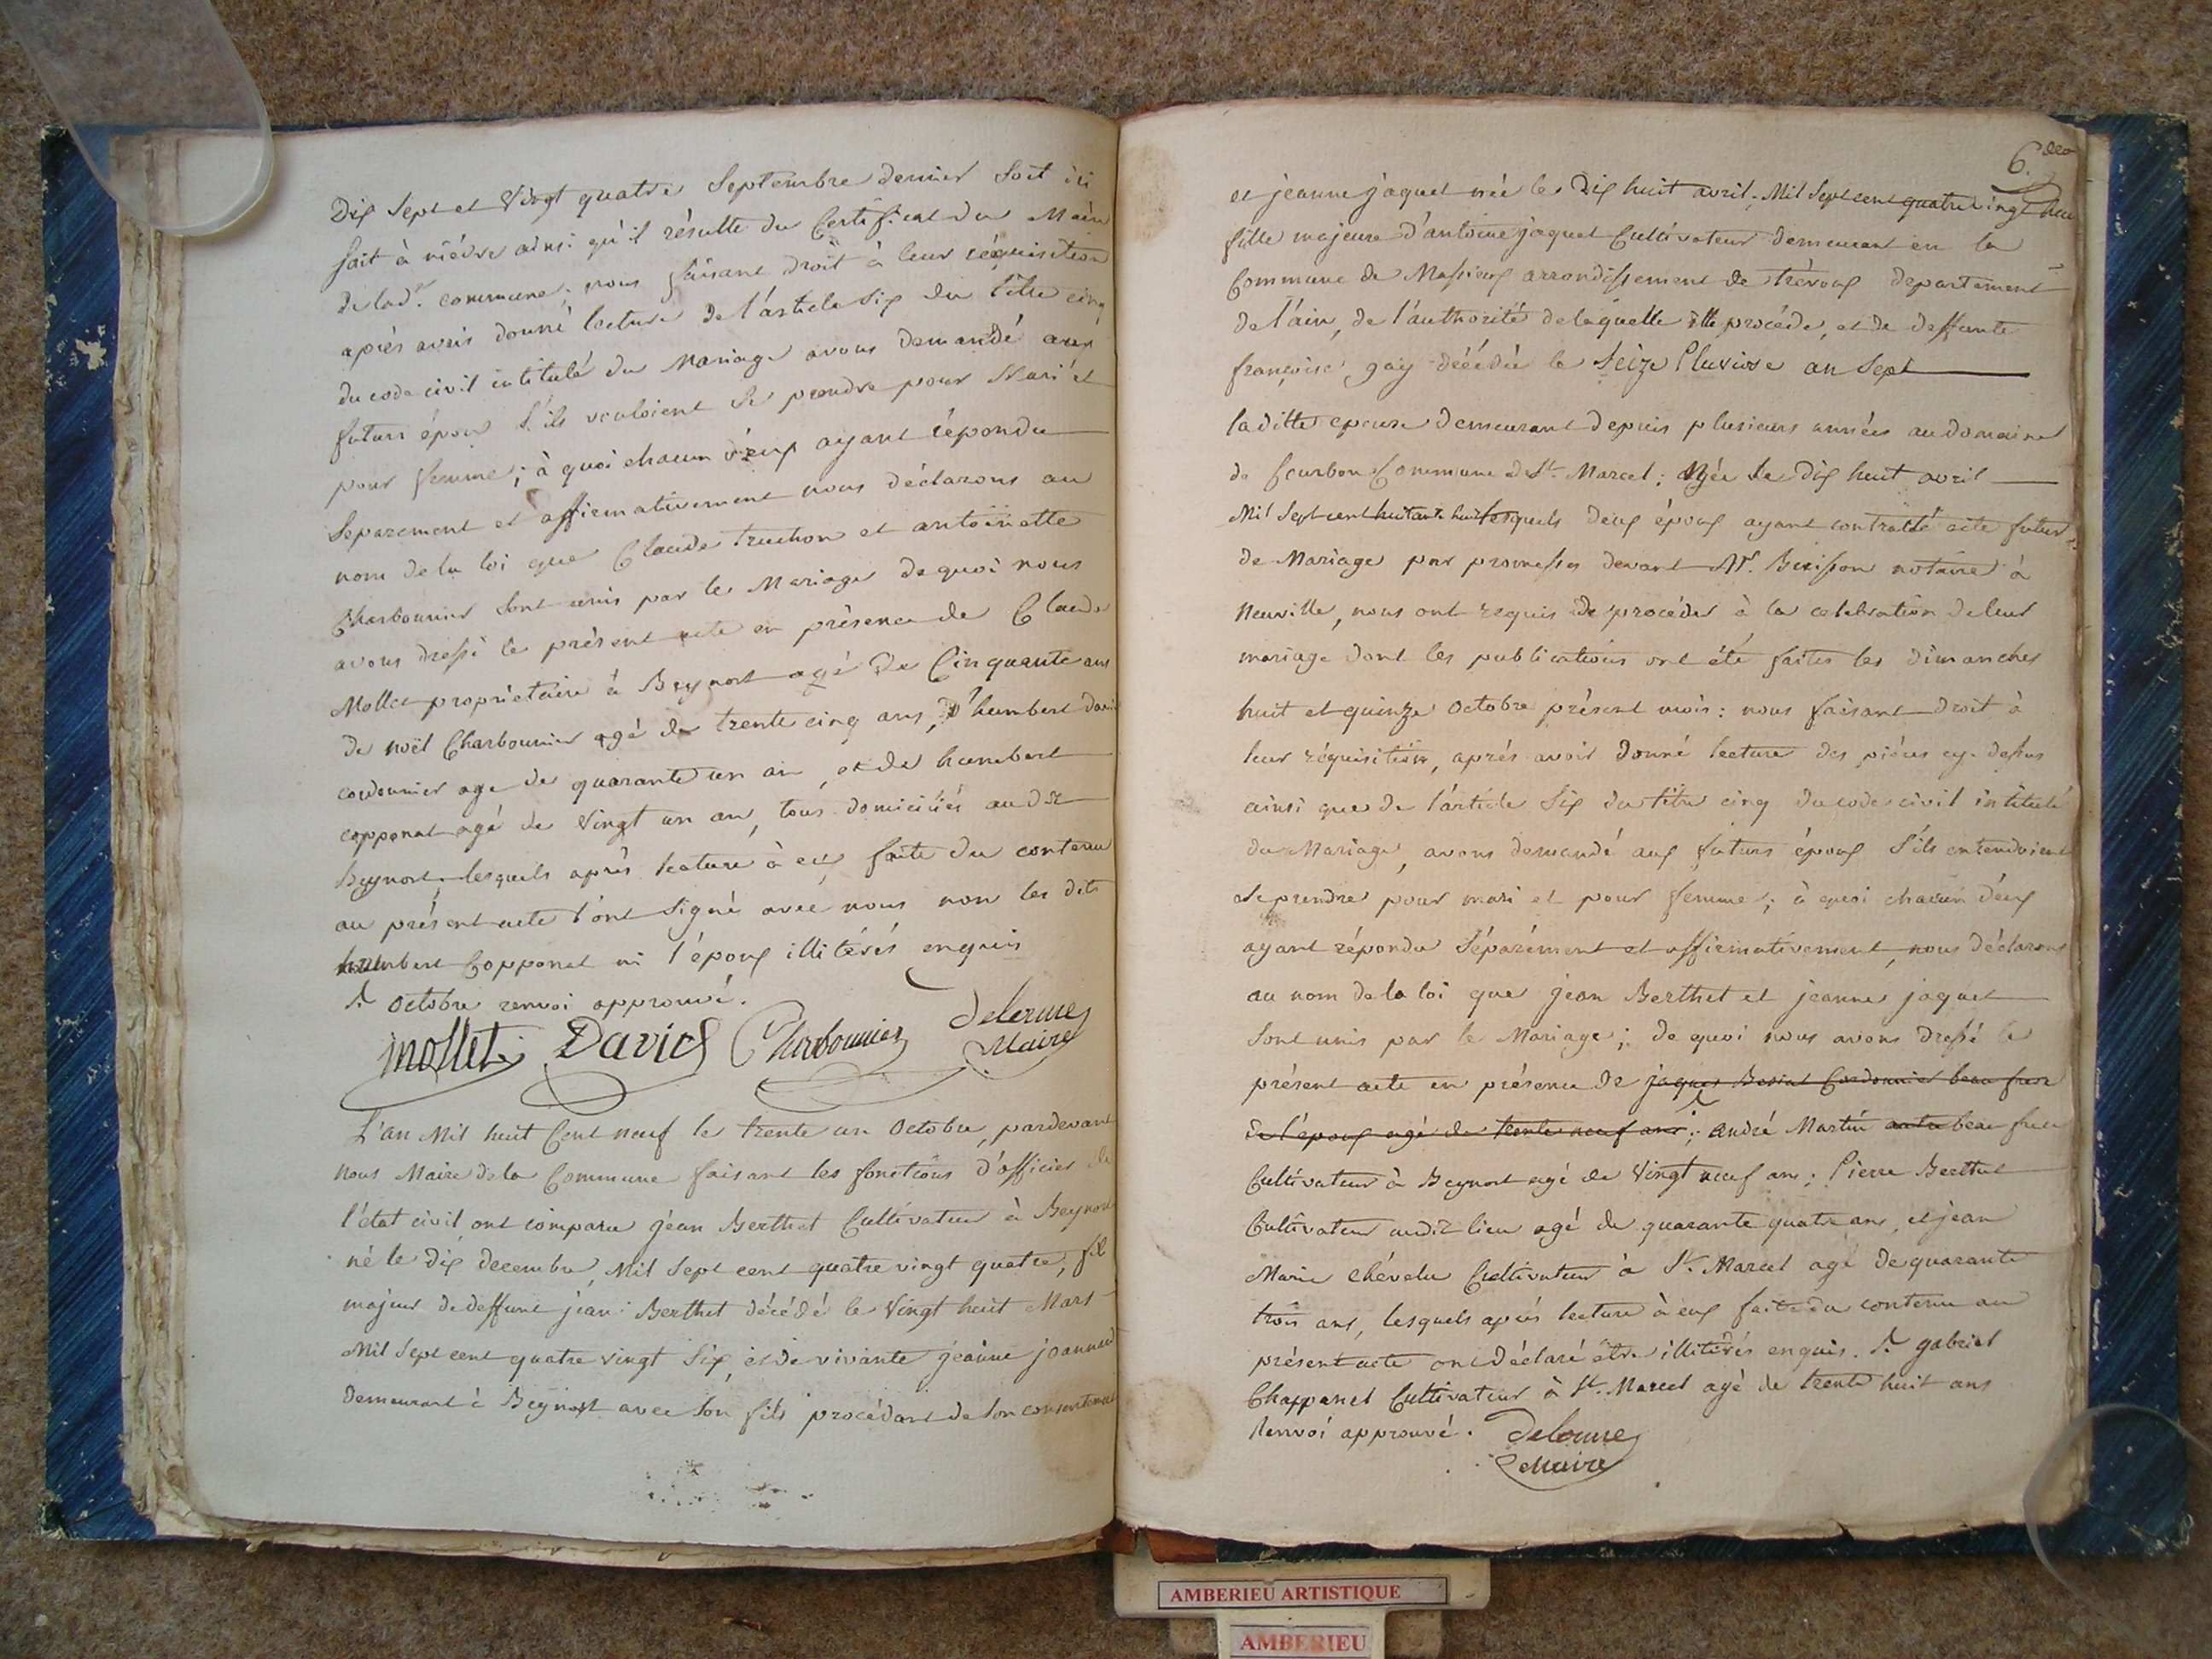 Dix Sept et Vingt quatre Septembre dernier Soit ici
fait à nièvre ainsi qu'il résulte du Certificat du Maire
de lad.e commune; nous faisant droit à leur réquisition
après avoir donné lecture de l'article Six du titre cinq
du code civil intitulé du Mariage avons demandé aux
futurs époux S'ils vouloient Se prendre pour Mari et
pour femme; à quoi chacun d'eux ayant répondu
Séparement et affirmativement nous déclarons au
nom de la loi que Claude truchon et antoinette
Charbonnier Sont unis par le Mariage de quoi nous
avons dressé le présent acte en présence de Claude
Mollet propriétaire à Beynost agé de Cinquante ans
de noël Charbonnier agé de trente cinq ans, d'humbert david
cordonnier age de quarante un an, et de humbert
copponat agé de Vingt un an, tous domiciliés aud.it
Beynost, lesquels après lecture à eux faite du contenu
au présent acte l'ont Signé avec nous non les dits
humbert Copponet ni l'époux illitérés enquis
octobre renvoi approuvé.
mollet David Charbonnier Delorme
Maire
L'an Mil huit Cent neuf le trente un Octobre, pardevant
nous Maire de la Commune faisant les fonctions d'officier de
l'état civil, ont comparu jean Berthet Cultivateur à Beynost
né le dix decembre, Mil Sept cent quatre vingt quatre, fils
majeur de deffunt jean Berthet décédé le Vingt huit Mars
Mil Sept cent quatre vingt Six, et de vivante jeanne
demeurant à Beynost avec Son fils procédant de Son consentement
6.
et jeanne jaquet née le Dix huit avril, Mil Sept cent quatre vingt huit
fille majeure d'antoine jaquet Cultivateur demeurant en la
Commune de Massieux arrondissement de trévoux departement
de l'ain, de l'authorité de laquelle elle procéde, et de deffunte
françoise gay décédée le Seize Pluviose an Sept
laditte epouse demeurant depuis plusieurs années au domaine
de Commune de St. Marcel; Née le Dix huit avril
Mil Sept cent huitante huit lesquels deux époux ayant contracté acte futur
de Mariage par promesses devant Mr. Buisson notaire à
Neuville, nous ont requis de procéder à la celebration de leur
mariage dont les publications ont été faites les dimanches
huit et quinze Octobre présent mois: nous faisant droit à
leur réquisition, après avoir donné lecture des pièces cy-dessus
ainsi que de l'article Six du titre cinq du code civil intitulé
du Mariage, avons demandé aux futurs époux S'ils entendoient
Se prendre pour mari et pour femme; à quoi chacun d'eux
ayant répondu Séparément et affirmativement, nous déclarons
au nom de la loi que jean Berthet et jeanne jaquet
Sont unis par le Mariage; de quoi nous avons dressé le
présent acte en présence de jaques Cordonnier beau frere
de l'époux agé de trente neuf ans; andré Martin autre beau frere
Cultivateur à Beynost agé de Vingt neuf ans; Pierre Berthet
Cultivateur audit lieu agé de quarante quatre ans, et jean
Marie chévelu Cultivateur à St. Marcel agé de quarante
trois ans, lesquels après lecture à eux faite du contenu au
présent acte ont déclaré être illitérés enquis. gabriel
Chappanet Cultivateur à St. Marcel agé de trente huit ans
Renvoi approuvé. Delorme
Maire
AMBERIEU ARTISTIQUE
AMBERIEU